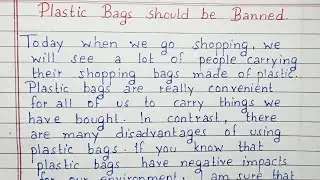 Plastic Bags should be Banned.
Today when we go shopping, we
will see a lot of people carrying
their shopping bags made of plastic.
Plastic bags are really convenient
for all of us to carry things we
have bought. In contrast, there
are many disadvantages of using
plastic bags. If you know that
plastic bags have negative impacts
for our environment, I am sure that